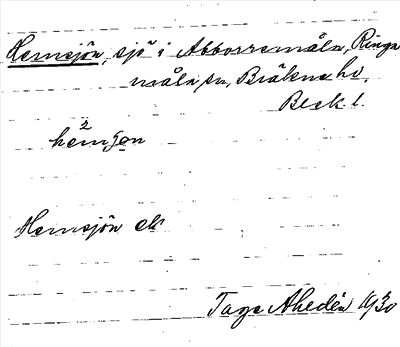 Hemsjön, sjö i Abborremåla, Ringa
måla sn, Bräkne hd
Blek l.
hèmʃon
Hemsjön ek
Tage Ahedén 1930